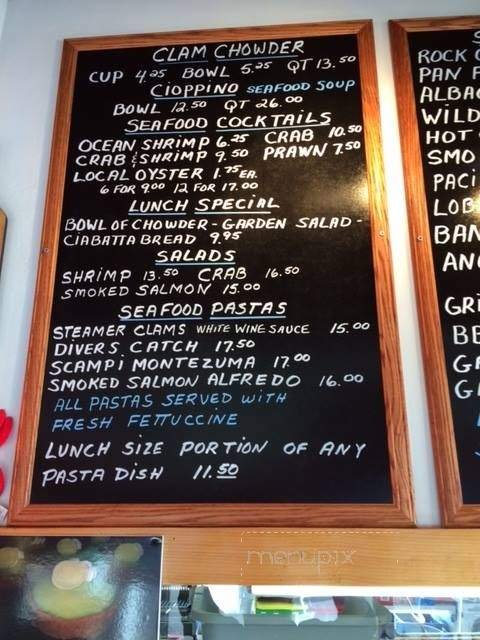 CLAM CHOWDER
CUP 4.25 BOWL 5.25 QT 13.50
CIOPPINO SEAFOOD SOUP
BOWL 12.50 QT 26.00
SEAFOOD COCKTAILS
OCEAN SHRIMP 6.25 CRAB 10.50
CRAB & SHRIMP 9.50 PRAWN 7.50
LOCAL OYSTER 1.75 EA.
6 FOR 9.00 12 FOR 17.00
LUNCH SPECIAL
BOWL OF CHOWDER - GARDEN SALAD -
CIABATTA BREAD 9.95
SALADS
SHRIMP 13.50 CRAB 16.50
SMOKED SALMON 15.00
SEAFOOD PASTAS
STEAMER CLAMS WHITE WINE SAUCE 15.00
DIVERS CATCH 17.50
SCAMPI MONTEZUMA 17.00
SMOKED SALMON ALFREDO 16.00
ALL PASTAS SERVED WITH
FRESH FETTUCCINE
LUNCH SIZE PORTION OF ANY
PASTA DISH 11.50
ROCK
PAN F
ALBA
WILD
HOT
SMO
PACI
LOB
BAN
AN
GRI
BE
GA
G
menupix